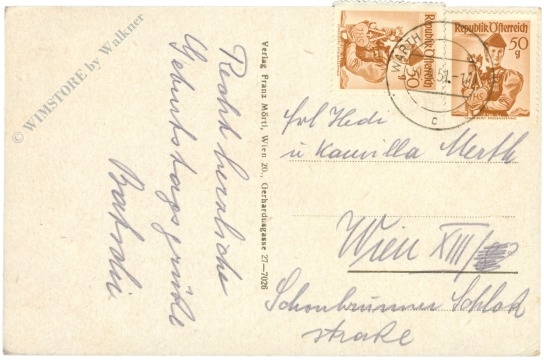 © WIMSTORE by Walkner
Recht herzliche
Geburtstagsgrüße
Verlag Franz Mörtl, Wien 20., Gerhardusgasse 27—7026
Republik Österreich
50
g
Republik Österreich
50
g
WARTH
51.-1
c
Frl Hedi
u Kamilla Merth
Wien XIII/
Schönbrunner Schloß
straße